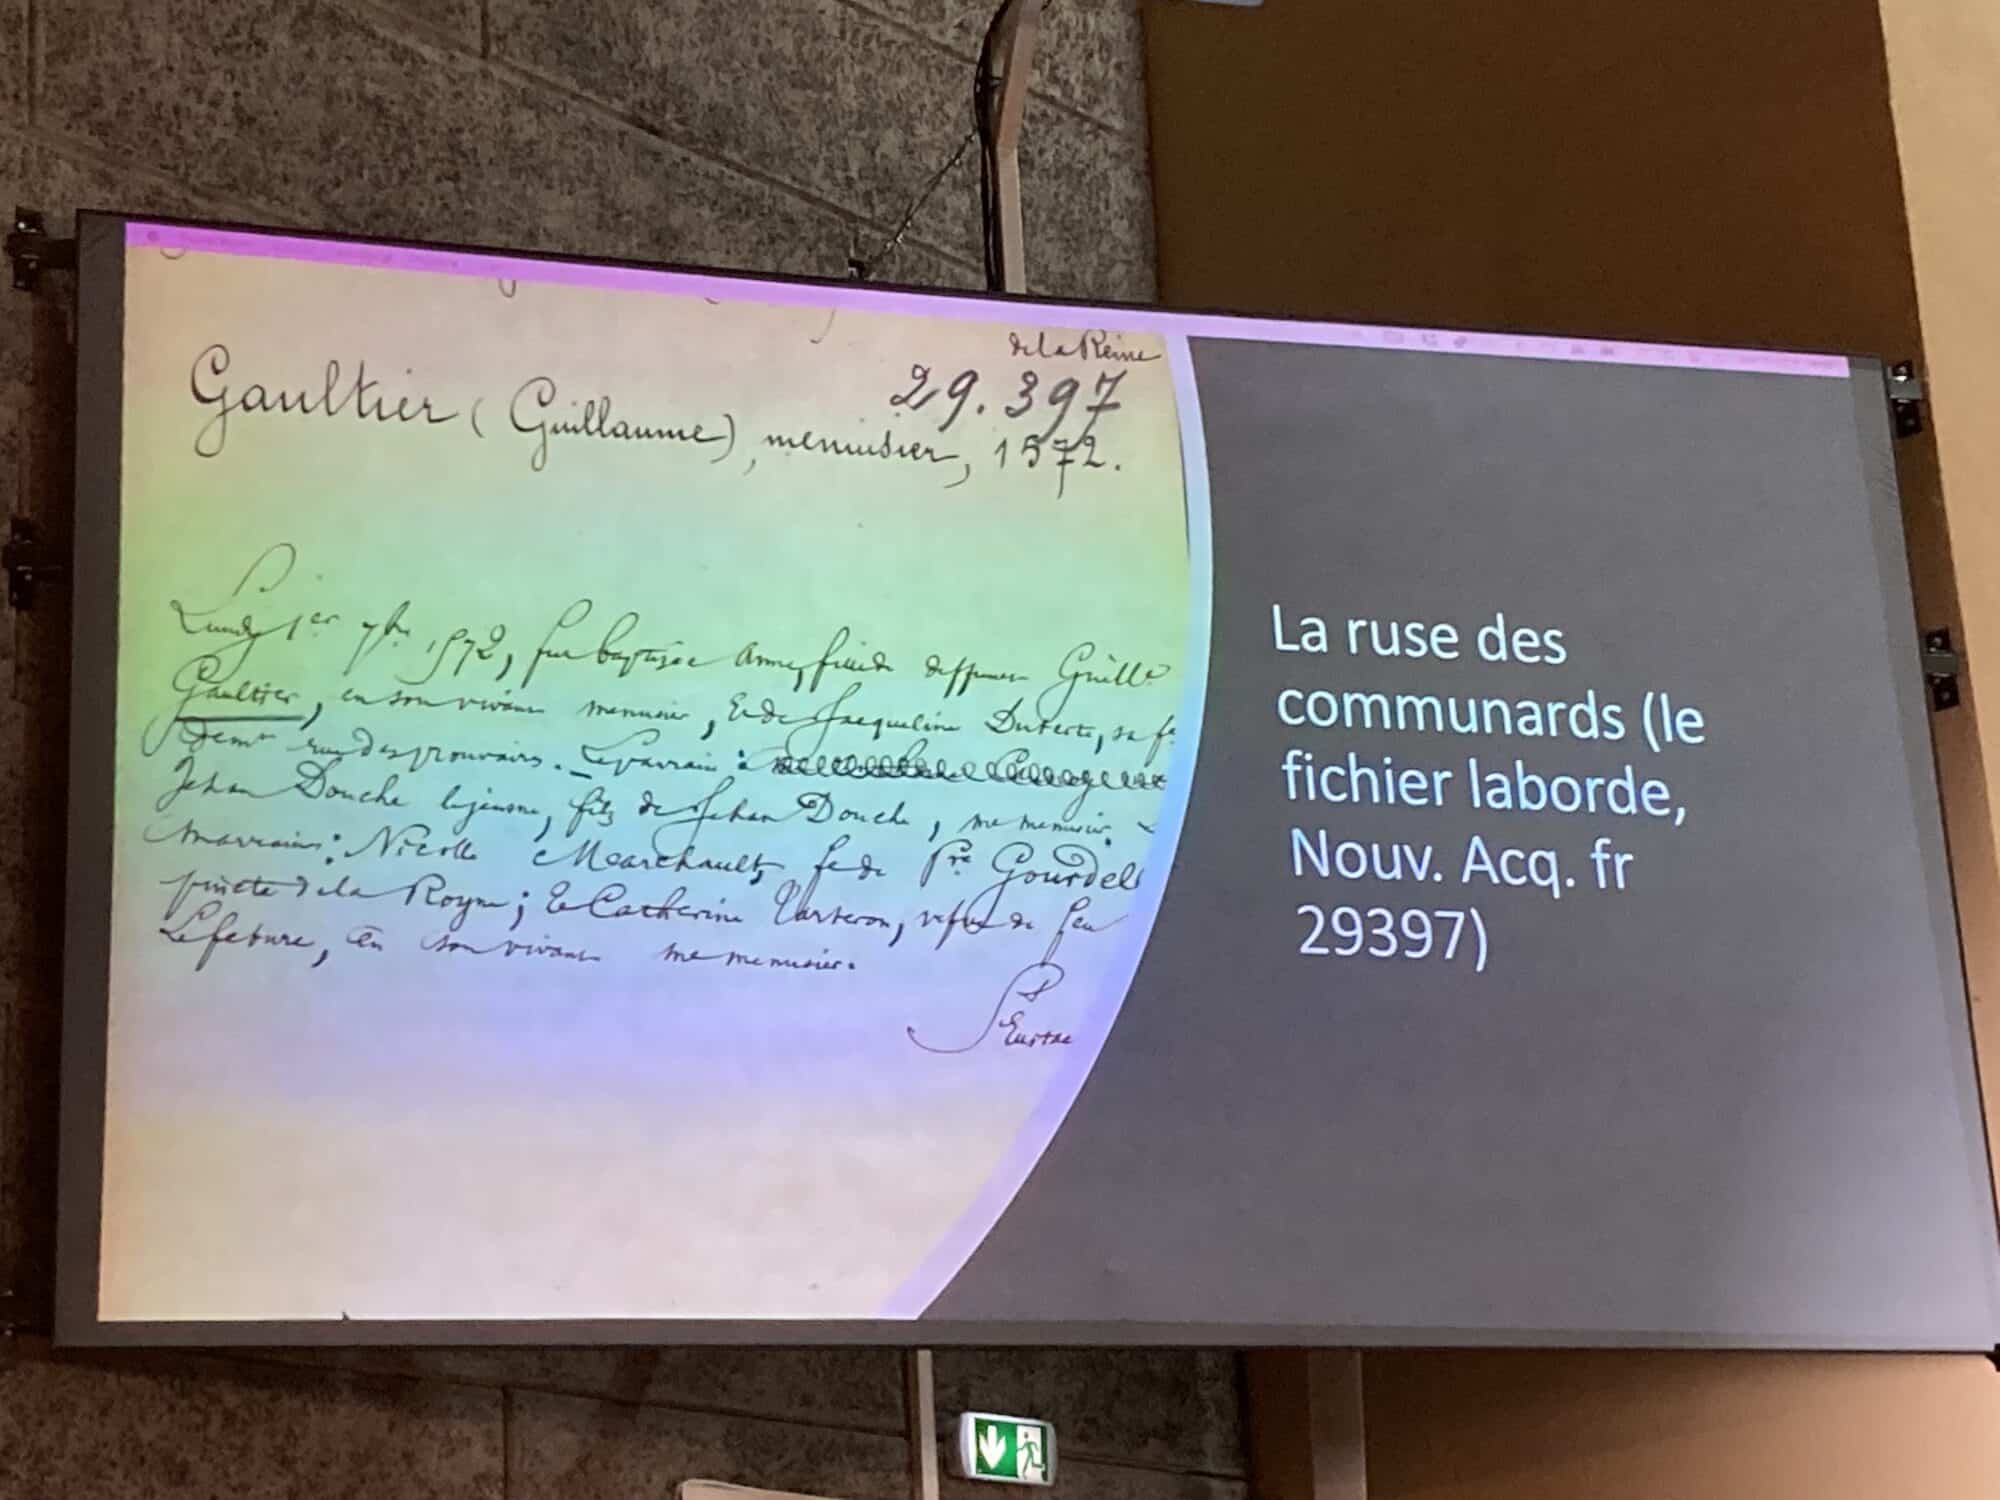 de la Reine
29.397
Gaultier (Guillaume), menuisier, 1572.
Lundy 1er 7bre 1572, fut baptisée Anne, fille de deffunct Guille
Gaultier, en son vivant menuisier, et de Jacqueline Duterte, sa fe
demt rue des prouvaires. Le parrain :
Jehan Douche le jeusne, filz de Jehan Douche, me menusier.
marraines : Nicolle Marchault, fe de Pre Gourdel
pinctre de la Royne ; et Catherine Tarteron, vefve de feu
Lefebure, en son vivant me menusier.
St
Eustac
La ruse des
communards (le
fichier laborde,
Nouv. Acq. fr
29397)